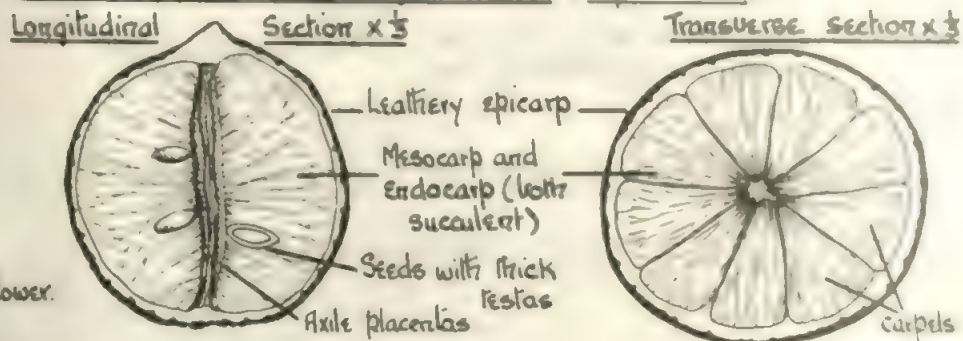 Longitudinal Section x ⅓
Transverse section x ⅓
Leathery epicarp
Mesocarp and
Endocarp (both
succulent)
Seeds with thick
testas
Axile placentas
carpels